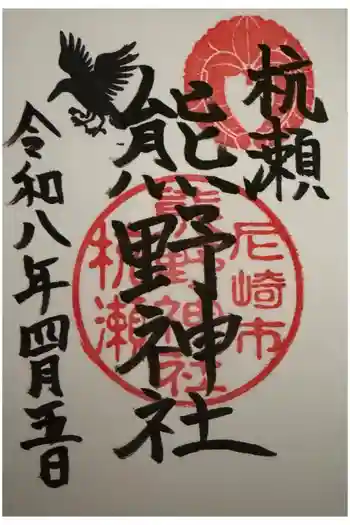 杭瀬
熊野神社
尼崎市
熊野神社
杭瀬
令和八年四月五日